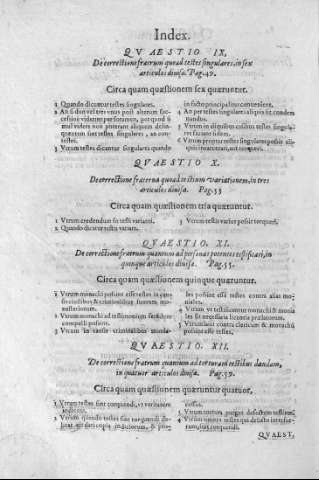 Index.
QVAESTIO IX,
De correctione fratrum quoad testes singulares, in sex
articulos diuisa. Pag. 49.
Circa quam quæstionem sex quæruntur.
1 Quando dicantur testes singulares.
2 An si duo vel tres vnus post alterum suc-
cessiuè viderint personam, per quod si
mul videre non potuerunt aliquem delin-
quentem sint testes singulares, an con-
testes.
3 Vtrum testes dicantur singulares quando
in facto principali non conueniunt.
4 An per testes singulares aliquis sit condem
nandus.
5 Vtrum in aliquibus casibus testes singula-
res faciant fidem.
6 Vtrum propter testes singulares possit ali-
quis
QVAESTIO X.
De correctione fraterna quoad testium variationem, in tres
articulos diuisa. Pag. 53
Circa quam quæstionem tria quæruntur.
1 Vtrum credendum sit testi varianti.
2 Quando dicatur testis varium.
3 Vtrum testis varius possit torqueri.
QVAESTIO XI.
De correctione fratrum quantum ad personas potentes testificari, in
quinque articulos diuisa. Pag. 55.
Circa quam quæstionem quinque quæruntur.
1 Vtrum monachi possint esse testes in cau-
sis ciuilibus & criminalibus suorum mo-
nasteriorum.
2 Vtrum monachi ad testimonium
compelli possint.
3 Vtrum in causis criminalibus mona-
les possint esse testes contra alias mo-
niales.
4 Vtrum vt testificentur monachi & monia
les sit necessaria licentia prælatorum.
5 Vtrum laici contra clericum & monachũ
possint esse testes.
QVAESTIO XII.
De correctione fratrum quantum ad torturam testibus dandam,
in quatuor articulos diuisa. Pag. 59.
Circa quam quæstionem quæruntur quatuor.
1 Vtrum testes sint torquendi, vt veritatem
indicent.
2 Vtrum quando testes sint torquendi de-
citati copia indiciorum, & pro-
cessus.
3 Vtrum tortura purget defectum testium.
4 Vtrum
QVAEST.